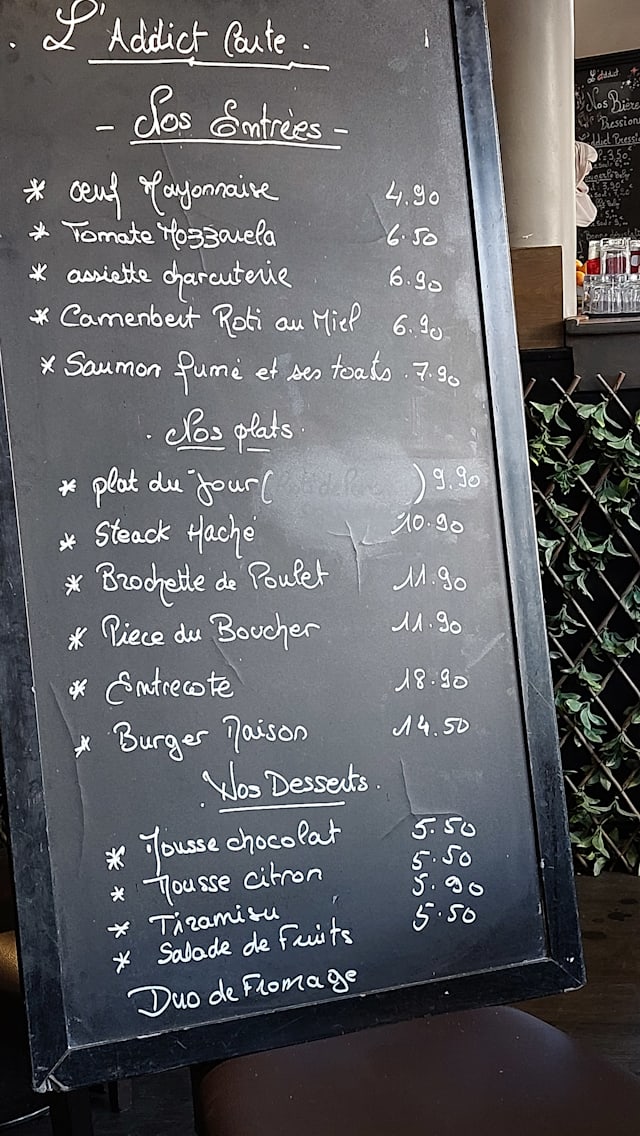 L'Addict Carte.
- Nos Entrées -
* œuf Mayonnaise 4.90
* Tomate Mozzarela 6.50
* assiette charcuterie 6.90
* Camenbert Roti au Miel 6.90
* Saumon fumé et ses toasts . 7.90
. Nos plats.
* plat du jour ( ) 9.90
* Steack Haché 10.90
* Brochette de Poulet 11.90
* Piece du Boucher 11.90
* Entrecote 18.90
* Burger Maison 14.50
. Nos Desserts.
* Mousse chocolat 5.50
* Mousse citron 5.50
* Tiramisu 5.90
* Salade de Fruits 5.50
Duo de Fromage
L'addict
Nos Bière
Pression